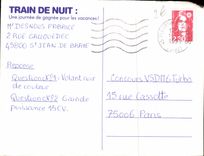 TRAIN DE NUIT :
Une journée de gagnée pour les vacances !
Mr DESNOUS FABRICE
2 RUE
45800 ST JEAN DE BRAYE
Réponse
Question N°1: Volant noir
de couleur
Question N°2: Grande
puissance 150 CV.
Concours VSD 116 Turbo
15 rue Cassette
75006 Paris